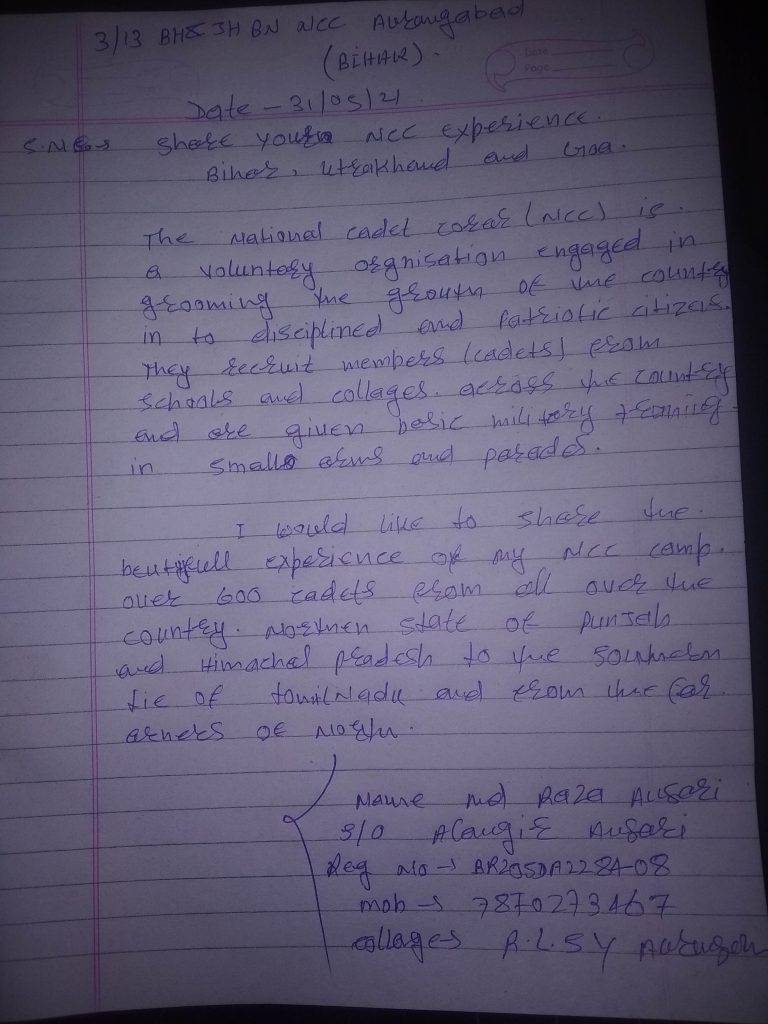 3/13 BH& JH BN NCC Aurangabad
(BIHAR).
Date
Page
Date - 31/05/21
Share your NCC experience.
Bihar, Utrakhand and Goa.
The National cadet corar (NCC) is.
a voluntory orgnisation engaged in
grooming the grouth of the country
in to disciplined and Patriotic citizens.
They recruit members (cadets) from
schools and collages. across the country
and are given basic military trenning
in small arms and parades.
I would like to share the.
beutyfull experience of my NCC camp.
over 600 cadets from all over the
country. Northen state of Punjab
and Himachal pradesh to the southern
tie of tamilNadu and from the far
arners of North.
Name md Raza Ansari
S/O Alaugir Ansari
Reg No → BR20SDA228408
mob → 7870273467
collages R.L.S.Y